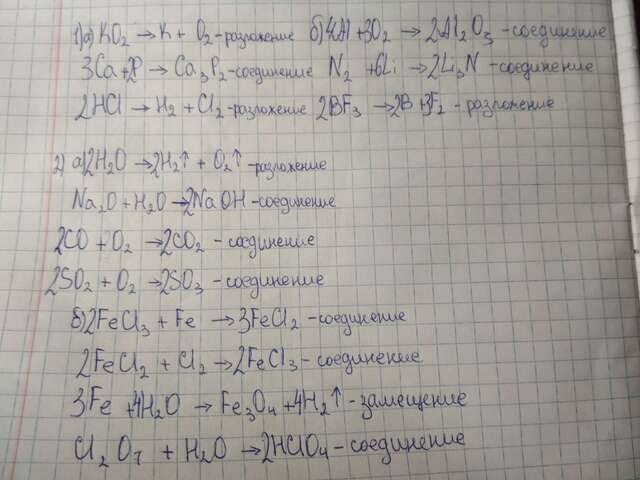 1) а) KO₂ → K + O₂ - разложение б) 4Al + 3O₂ → 2Al₂O₃ - соединение
3Ca + 2P → Ca₃P₂ - соединение N₂ + 6Li → 2Li₃N - соединение
2HCl → H₂ + Cl₂ - разложение 2BF₃ → 2B + 3F₂ - разложение
2) а) 2H₂O → 2H₂↑ + O₂↑ - разложение
Na₂O + H₂O → 2NaOH - соединение
2CO + O₂ → 2CO₂ - соединение
2SO₂ + O₂ → 2SO₃ - соединение
б) 2FeCl₃ + Fe → 3FeCl₂ - соединение
2FeCl₂ + Cl₂ → 2FeCl₃ - соединение
3Fe + 4H₂O → Fe₃O₄ + 4H₂↑ - замещение
Cl₂O₇ + H₂O → 2HClO₄ - соединение